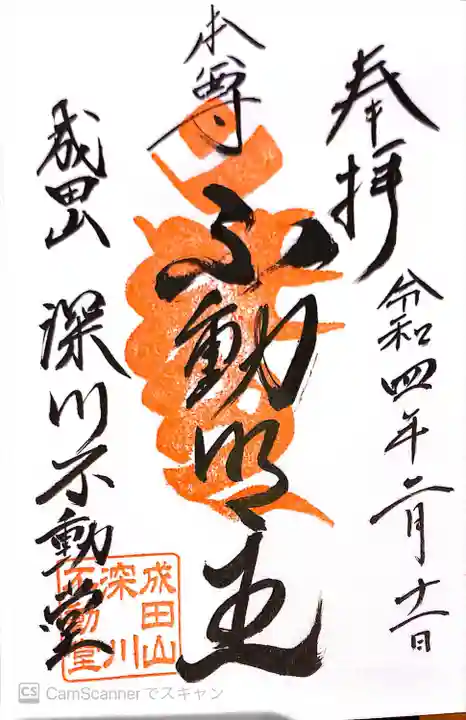 奉拝
令和四年二月十一日
本尊
不動明王
成田山 深川不動堂
成田山
深川
不動堂
CS CamScannerでスキャン